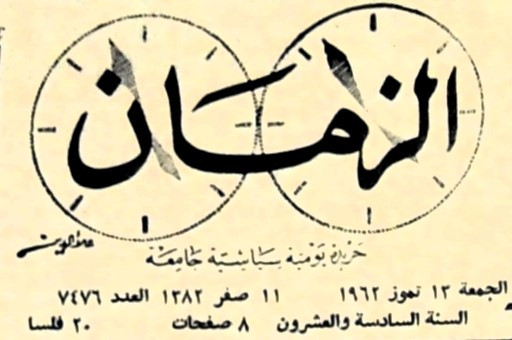 الزمان
جريدة يومية سياسية جامعة
الجمعة ١٣ تموز ١٩٦٢ ١١ صفر ١٣٨٢ العدد ٧٤٧٦
السنة السادسة والعشرون ٨ صفحات ٢٠ فلسا